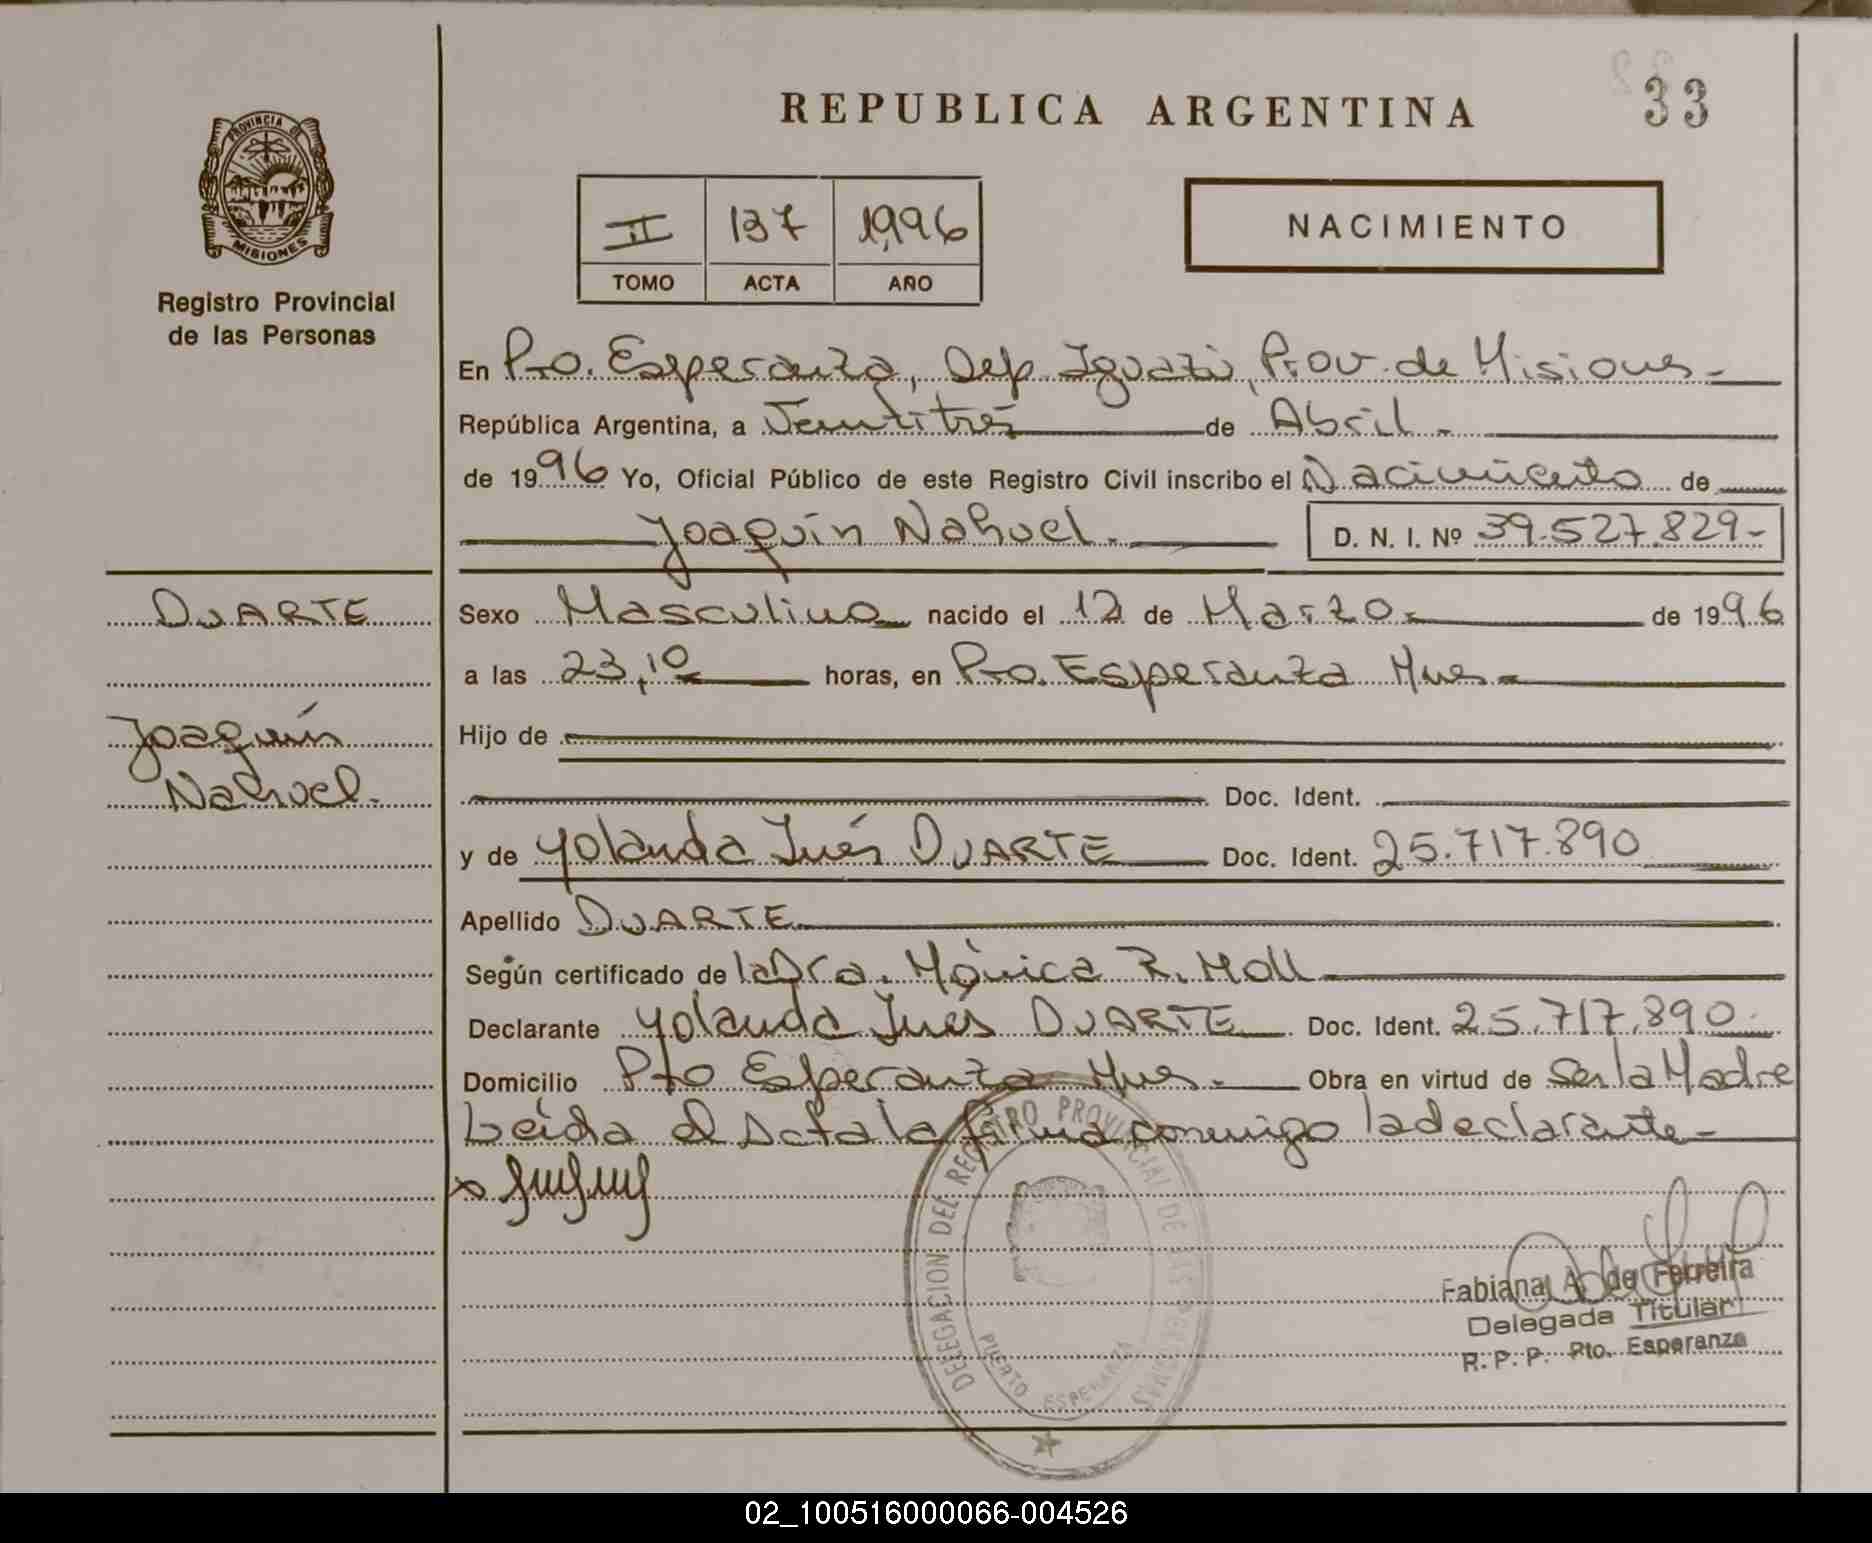 REPUBLICA ARGENTINA
33
PROVINCIA DE
MISIONES
Registro Provincial
de las Personas
II 137 1996
TOMO ACTA AÑO
NACIMIENTO
En Pto. Esperanza, Dep. Iguazú, Prov. de Misiones.-
República Argentina, a Veintitrés de Abril.-
de 1996 Yo, Oficial Público de este Registro Civil inscribo el Nacimiento de
Joaquín Nahuel.- D. N. I. Nº 39.527.829-
DUARTE
Joaquín
Nahuel.
Sexo Masculino nacido el 12 de Marzo.- de 1996
a las 23,10 horas, en Pto. Esperanza Mnes.-
Hijo de
Doc. Ident.
y de Yolanda Inés DUARTE Doc. Ident. 25.717.890
Apellido DUARTE
Según certificado de la Dra. Mónica R. Moll
Declarante Yolanda Inés DUARTE Doc. Ident. 25.717.890
Domicilio Pto Esperanza Mnes.- Obra en virtud de Ser la Madre
Leída el Acta la firma conmigo la declarante-
DELEGACION DEL REGISTRO PROVINCIAL DE LAS PERSONAS
PUERTO ESPERANZA
Fabiana A. de Ferreira
Delegada Titular
R. P. P. Pto. Esperanza
02_100516000066-004526